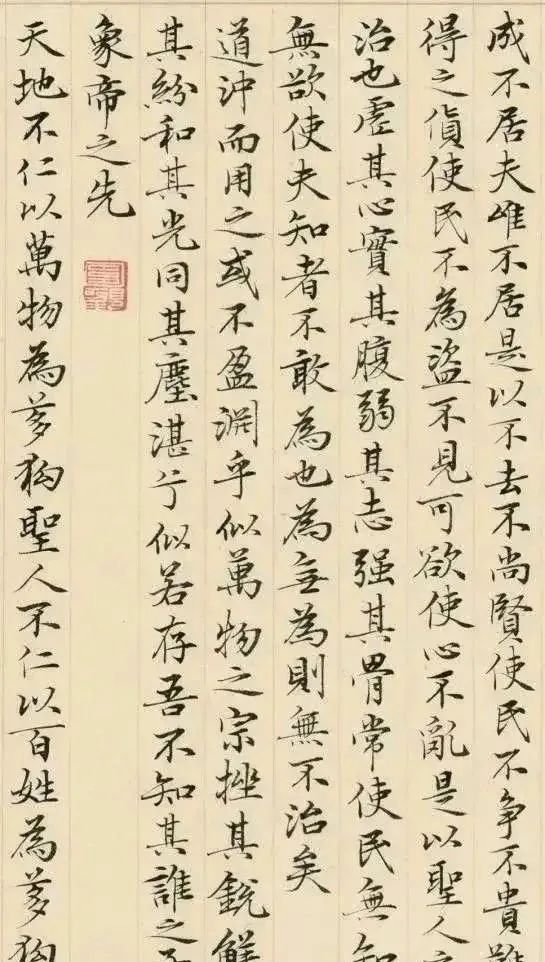 成不居夫唯不居是以不去不尚賢使民不争不貴難
得之貨使民不為盜不見可欲使心不亂是以聖人之
治也虛其心實其腹弱其志强其骨常使民無知
無欲使夫知者不敢為也為无為則無不治矣
道沖而用之或不盈淵乎似萬物之宗挫其銳解
其紛和其光同其塵湛兮似若存吾不知其誰之子
象帝之先
天地不仁以萬物為芻狗聖人不仁以百姓為芻狗